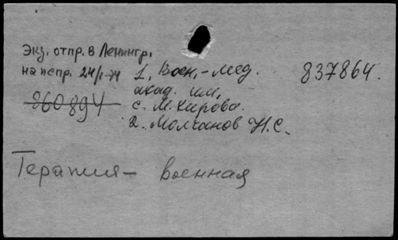 Экз. отпр. в Ленингр.
на испр. 24/I-74
860894
1, Воен.-мед. 837864.
акад. им.
С. М. Кирова.
2. Молчанов Н.С.
Терапия — военная